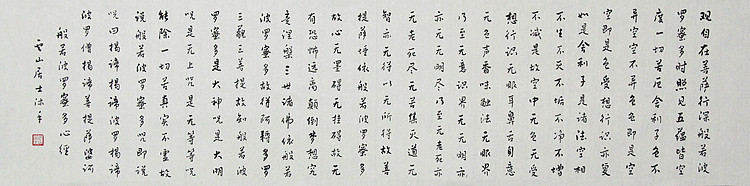 观自在菩萨行深般若波
罗蜜多时照见五蕴皆空
度一切苦厄舍利子色不
异空空不异色色即是空
空即是色受想行识亦复
如是舍利子是诸法空相
不生不灭不垢不净不增
不减是故空中无色无受
想行识无眼耳鼻舌身意
无色声香味触法无眼界
乃至无意识界无无明亦
无无明尽乃至无老死亦
无老死尽无苦集灭道无
智亦无得以无所得故菩
提萨埵依般若波罗蜜多
故心无罣碍无挂碍故无
有恐怖远离颠倒梦想究
竟涅槃三世诸佛依般若
波罗蜜多故得阿耨多罗
三藐三菩提故知般若波
罗蜜多是大神咒是大明
咒是无上咒是无等等咒
能除一切苦真实不虚故
说般若波罗蜜多咒即说
咒曰揭谛揭谛波罗揭谛
波罗僧揭谛菩提萨婆诃
般若波罗蜜多心经
云山居士沐手